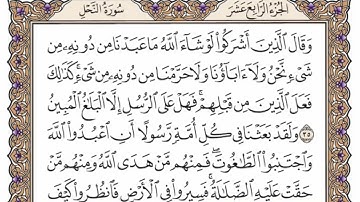 الجزء الرابع عشر سورة النحل
وَقَالَ ٱلَّذِينَ أَشۡرَكُواْ لَوۡ شَآءَ ٱللَّهُ مَا عَبَدۡنَا مِن دُونِهِۦ مِن
شَيۡءٖ نَّحۡنُ وَلَآ ءَابَآؤُنَا وَلَا حَرَّمۡنَا مِن دُونِهِۦ مِن شَيۡءٖۚ كَذَٰلِكَ
فَعَلَ ٱلَّذِينَ مِن قَبۡلِهِمۡۚ فَهَلۡ عَلَى ٱلرُّسُلِ إِلَّا ٱلۡبَلَٰغُ ٱلۡمُبِينُ
٣٥ وَلَقَدۡ بَعَثۡنَا فِي كُلِّ أُمَّةٖ رَّسُولًا أَنِ ٱعۡبُدُواْ ٱللَّهَ
وَٱجۡتَنِبُواْ ٱلطَّٰغُوتَۖ فَمِنۡهُم مَّنۡ هَدَى ٱللَّهُ وَمِنۡهُم مَّنۡ
حَقَّتۡ عَلَيۡهِ ٱلضَّلَٰلَةُۚ فَسِيرُواْ فِي ٱلۡأَرۡضِ فَٱنظُرُواْ كَيۡفَ